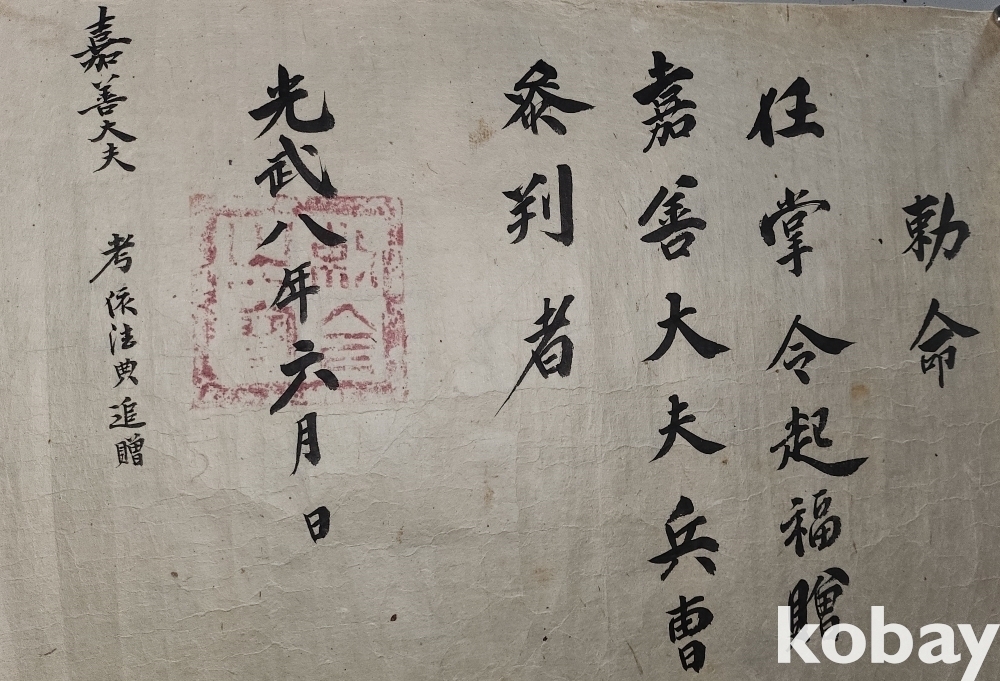 勅命
任掌令起福贈
嘉善大夫兵曺
叅判者
光武八年六月 日
嘉善大夫 考依法典追贈
kobay